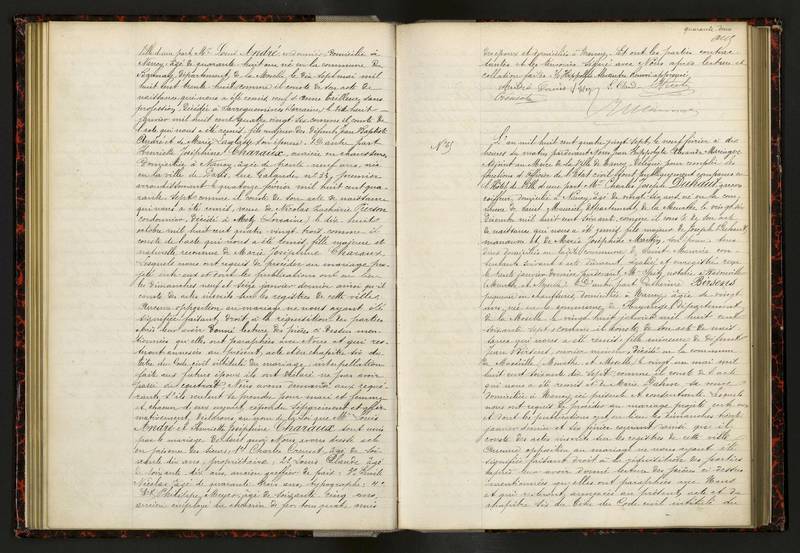 fille d'une part Mr Louis André cordonnier, domicilié à
Nancy, âgé de quarante huit ans né en la commune de
département de la Moselle, le dix sept mai mil
huit cent trente huit comme il conste de son acte de
naissance qui nous a été remis, veuf d'Anne sans
profession, décédée à Sarreguemines (Lorraine) le dix huit
janvier mil huit cent quatre vingt six comme il conste de
l'acte qui nous a été remis, fils majeur des défunts Jean Baptiste
André et de Marie son épouse. D'autre part
Henriette Joséphine Charaux, ouvrière en chaussures,
domiciliée à Nancy, âgée de trente neuf ans, née
en la ville de Paris, rue Galande, nº 23, premier
arrondissement le quatorze février mil huit cent qua
rante sept comme il conste de son acte de naissance
qui nous a été remis, veuve de Nicolas
cordonnier, décédé à Metz (Lorraine) le dix huit
octobre mil huit cent quatre-vingt trois comme il
conste de l'acte qui nous a été remis, fille majeure et
naturelle reconnue de Marie Joséphine Charaux.
Lesquels nous ont requis de procéder au mariage pro
jeté entre eux et dont les publications ont eu lieu
les dimanches neuf et seize janvier dernier ainsi qu'il
conste des actes inscrits sur les registres de cette ville
Aucune opposition au mariage ne nous ayant été
signifiée faisant droit à la réquisition des parties
après leur avoir donné lecture des pièces ci dessus men
tionnées qu'elles ont paraphées avec Nous et qui res
teront annexées au présent acte et du chapitre six du
titre du Code civil intitulé du mariage, interpellation
faite aux futurs époux ils ont déclaré ne pas avoir
passé de contrat. Nous avons demandé aux requé
rants s'ils veulent se prendre pour mari et femme
et chacun d'eux ayant répondu séparément et affir
mativement, déclarons au nom de la Loi que Mr Louis
André et Henriette Joséphine Charaux sont unis
par le mariage. De tout quoi Nous avons dressé acte
en présence des Sieurs, 1º Charles âgé de soi
xante dix ans, propriétaire, 2º Louis Claude âgé
de soixante dix ans, ancien greffier de paix, 3º Emile
Nicolas âgé de quarante trois ans, typographe, 4º
Philippe Meyer, âgé de soixante cinq ans,
ancien employé du chemin de fer, tous quatre amis
quarante deux
des époux et domiciliés à Nancy. Et ont les parties contrac
tantes et les témoins signé avec Nous après lecture et
collation faites.
André Louis Meyer L. Claude Nicolas
Nº 85
L'an mil huit cent quatre vingt sept, le neuf février à dix
heures du matin, pardevant Nous Jean Hippolyte
Adjoint au Maire de la Ville de Nancy, délégué pour remplir les
fonctions d'Officier de l'Etat civil, sont publiquement comparus à
l'Hôtel de Ville d'une part Mr Charles Joseph Duhaut, garçon
coiffeur, domicilié à Nancy, âgé de vingt six ans né en la com
mune de département de la Meurthe, le vingt six
décembre mil huit cent soixante, comme il conste de son acte
de naissance qui nous a été remis, fils majeur de Joseph Duhaut,
manœuvre, et de Marie Joséphine son épouse tous
deux domiciliés en ladite commune de Saint Maurice con
sentants suivant acte dûment légalisé et enregistré reçu
le trente janvier dernier pardevant Me notaire à
(Meurthe et Moselle). Et D'autre part Catherine Birsens
piqueuse en chaussures, domiciliée à Nancy, âgée de vingt
ans, née en la commune de département
de la Moselle le vingt huit mil huit cent
soixante sept comme il conste de son acte de nais
sance qui nous a été remis, fille mineure de défunt
Jean Birsens ouvrier décédé en la commune
de Maxéville Meurthe et Moselle le vingt un mai mil
huit cent soixante dix sept comme il conste de l'acte
qui nous a été remis et de Marie sa veuve
domiciliée à Nancy, ici présente et consentante. Lesquels
nous ont requis de procéder au mariage projeté entre eux
et dont les publications ont eu lieu les dimanches trente
janvier dernier et six février courant ainsi qu'il
conste des actes inscrits sur les registres de cette ville
Aucune opposition au mariage ne nous ayant été
signifiée faisant droit à la réquisition des parties
après leur avoir donné lecture des pièces ci dessus
mentionnées qu'elles ont paraphées avec Nous
et qui resteront annexées au présent acte et du
chapitre six du titre du Code civil intitulé du